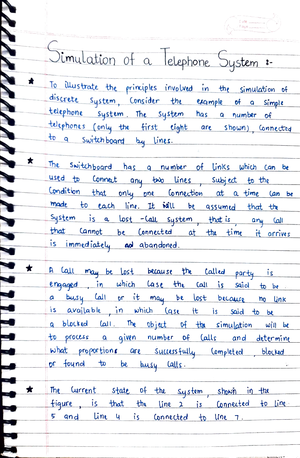 Simulation of a Telephone System :-
★ To illustrate the principles involved in the simulation of
discrete system, Consider the example of a simple
telephone system. The system has a number of
telephones (only the first eight are shown), Connected
to a Switchboard by lines.
★ The Switchboard has a number of links which can be
used to connect any two lines, subject to the
Condition that only one connection at a time can be
made to each line. It will be assumed that the
System is a lost-call system, that is, any call
that cannot be connected at the time it arrives
is immediately abandoned.
★ A Call may be lost because the called party is
engaged, in which case the call is said to be
a busy call or it may be lost because no link
is available, in which case it is said to be
a blocked call. The object of the simulation will be
to process a given number of calls and determine
what proportions are successfully completed, blocked
or found to be busy calls.
★ The current state of the system, shown in the
figure, is that the line 2 is connected to line
5 and line 4 is connected to line 7.